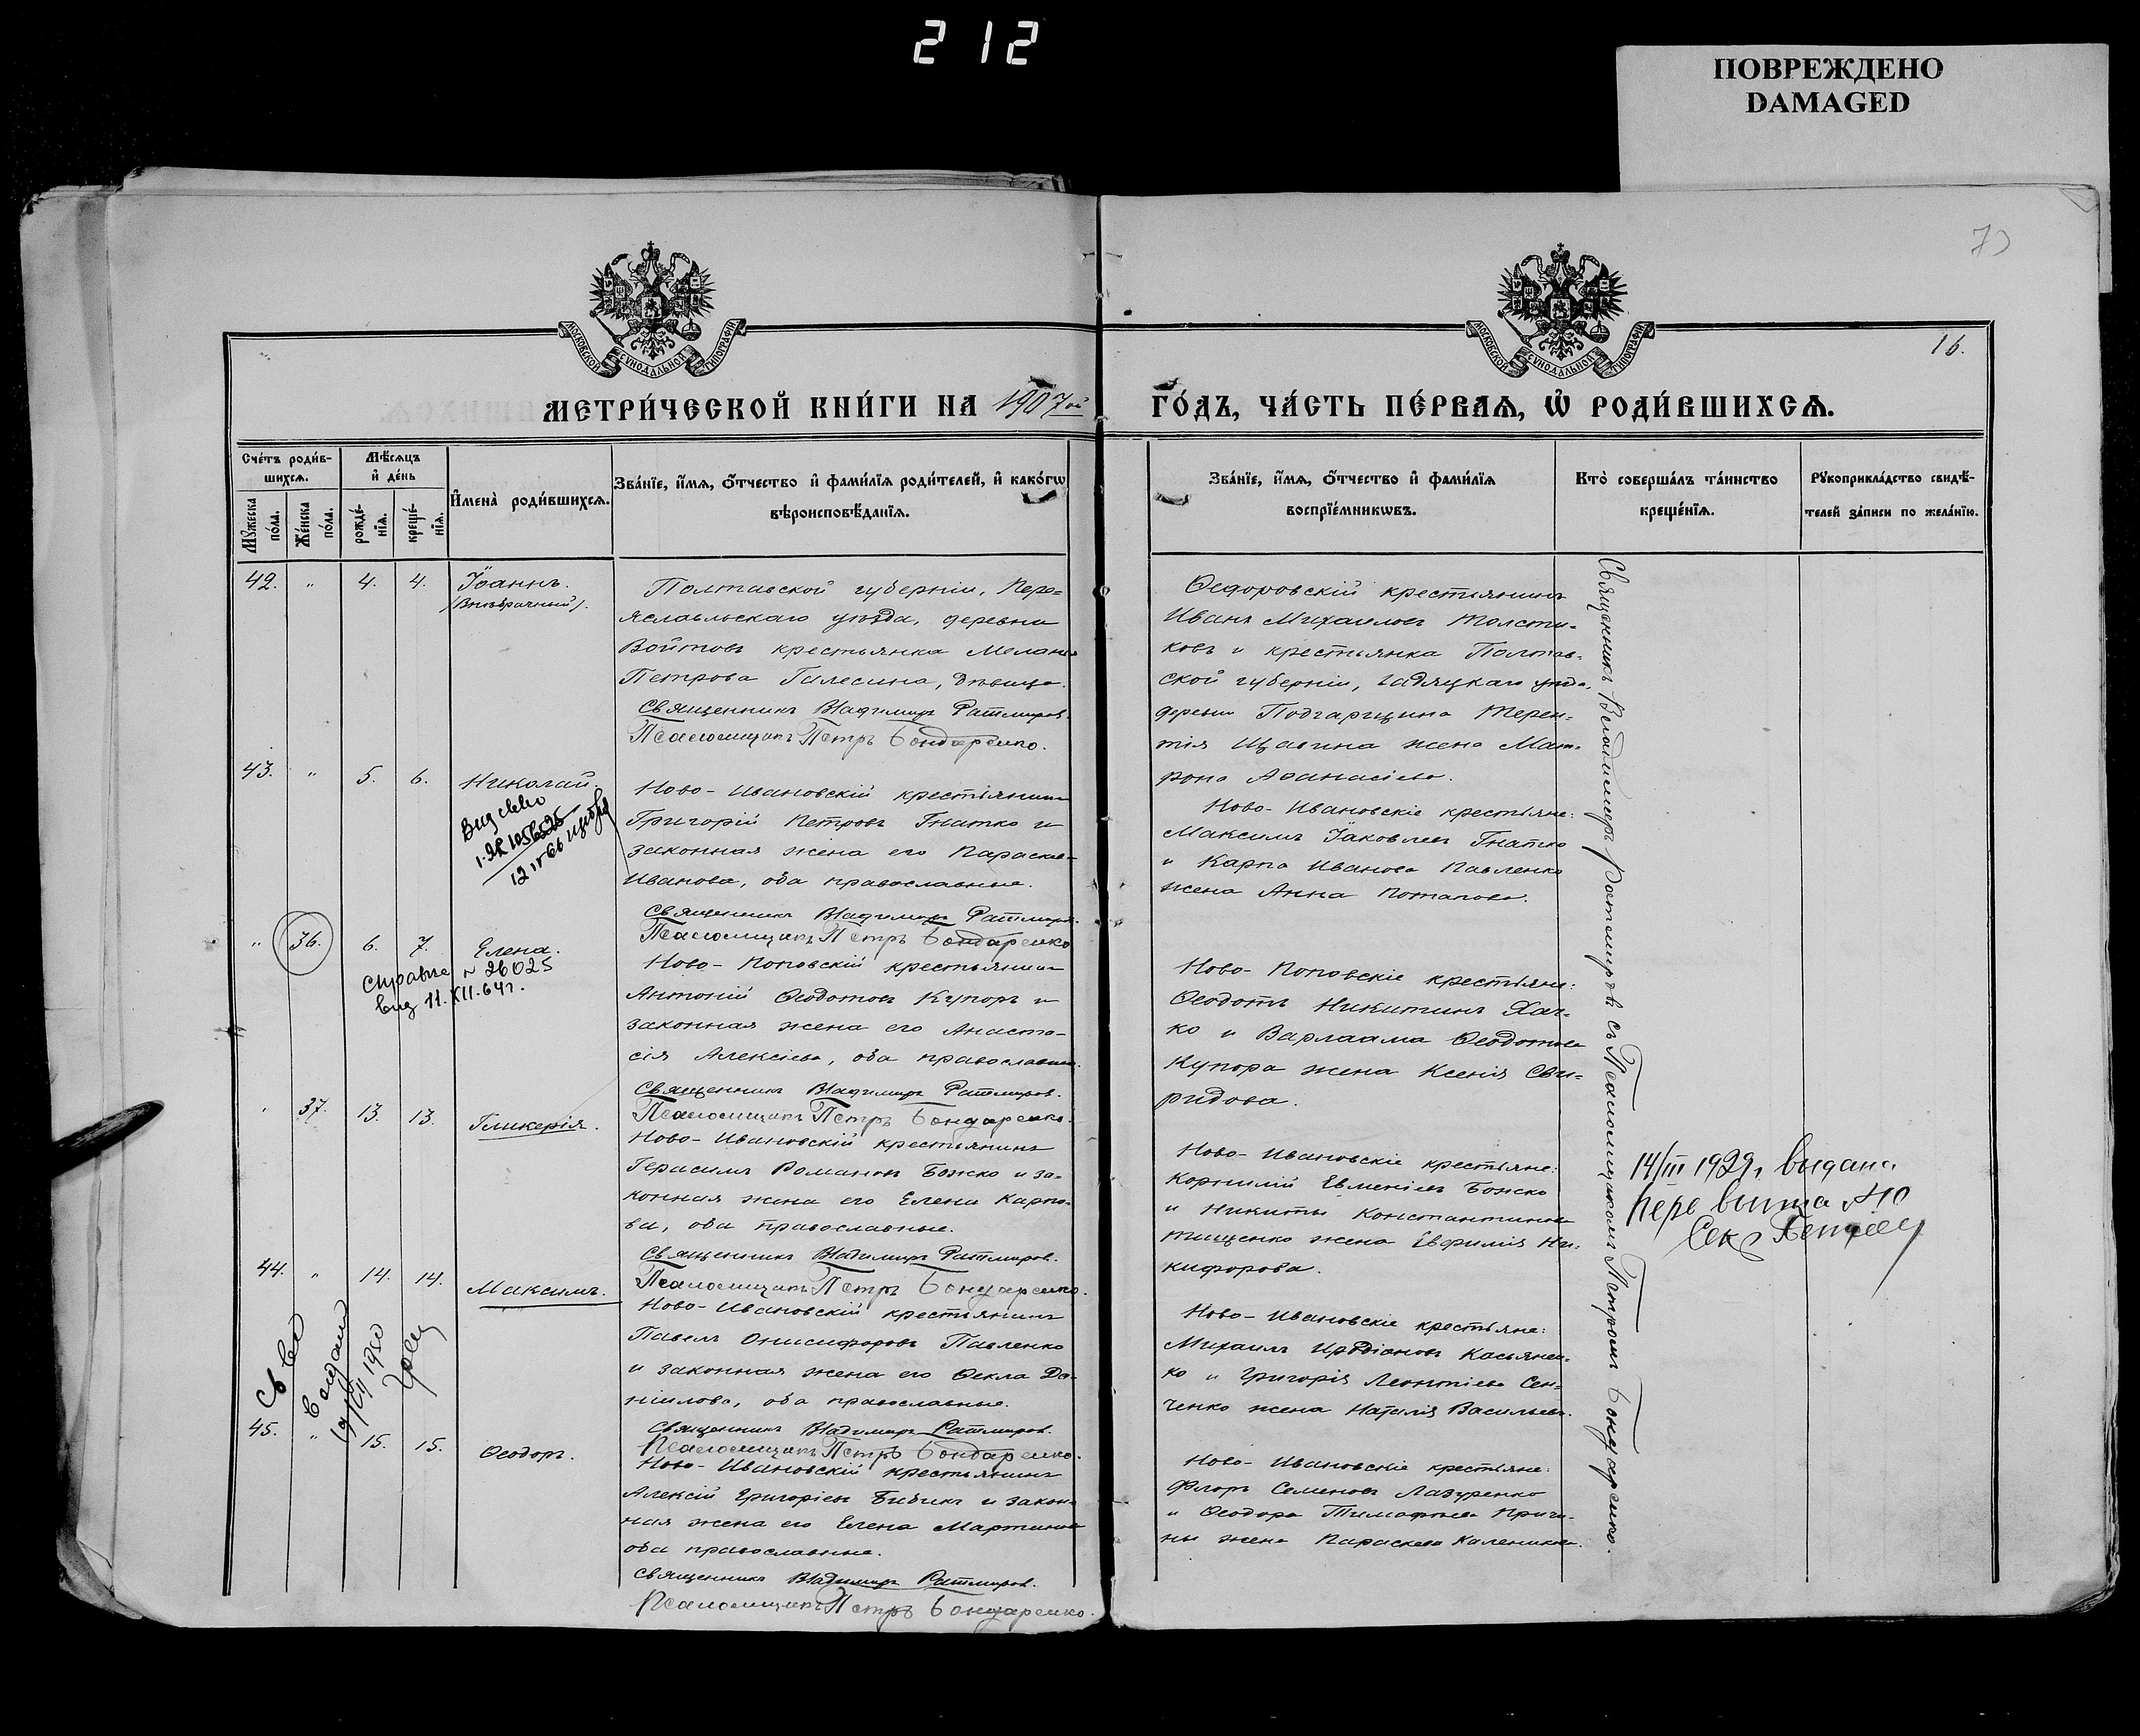 212
ПОВРЕЖДЕНО
DAMAGED
73
16.
МОСКОВСКОЙ СѴНОДАЛЬНОЙ ТИПОГРАФІИ
МОСКОВСКОЙ СѴНОДАЛЬНОЙ ТИПОГРАФІИ
МЕТРИ́ЧЕСКОЙ КНИ́ГИ НА 1907ой ГО́ДЪ, ЧА́СТЬ ПЕ́РВАѦ, Ѡ҆ РОДИ́ВШИХСѦ.
Сче́тъ роди́в-
шихсѧ.
Мꙋ́жеска по́ла.
Же́нска по́ла.
Мѣ́сѧцъ
и҆ де́нь
рожде́-
нїѧ.
креще́-
нїѧ.
И҆мена̀ роди́вшихсѧ.
Зва́нїе, и҆́мѧ, ѻ҆́тчество и҆ фами́лїѧ роди́телей, и҆ како́гѡ
вѣроисповѣ́данїѧ.
Зва́нїе, и҆́мѧ, ѻ҆́тчество и҆ фами́лїѧ
воспрїе́мникѡвъ.
Кто̀ соверша́лъ та́инство
креще́нїѧ.
Рꙋкоприкла́дство свидѣ́-
телей за́писи по жела́нїю.
42. " 4. 4. Іоаннъ.
(Внѣбрачный).
Полтавской губерніи, Пере-
яславльскаго уѣзда, деревни
Войтовъ крестьянка Меланія
Петрова Галесина, дѣвица.
Священникъ Владимиръ Ратмировъ.
Псаломщикъ Петръ Бондаренко.
Ѳедоровскій крестьянинъ
Иванъ Михаиловъ Толсти-
ковъ и крестьянка Полтав-
ской губерніи, Гадяцкаго уѣзда,
деревни Подгарщина Терен-
тія Щавина жена Мат-
рона Аѳанасіева.
43. " 5. 6. Николай.
12 IV 66
Ново-Ивановскій крестьянинъ
Григорій Петровъ Гнатко и
законная жена его Параскева
Иванова, оба православные.
Священникъ Владимиръ Ратмировъ.
Псаломщикъ Петръ Бондаренко
Ново-Ивановскіе крестьяне:
Максимъ Іаковлевъ Гнатко
и Карпа Иванова Павленко
жена Анна Потапова.
" 36. 6. 7. Елена.
справка № 26025
вид 11.XII.64г.
Ново-Поповскій крестьянинъ
Антоній Ѳеодотовъ Купоръ и
законная жена его Анаста-
сія Алексіева, оба православные.
Священникъ Владимиръ Ратмировъ.
Псаломщикъ Петръ Бондаренко.
Ново-Поповскіе крестьяне:
Ѳеодотъ Никитинъ Хач-
ко и Варлаама Ѳеодотова
Купора жена Ксенія Сви-
ридова.
" 37. 13. 13. Гликерія.
Ново-Ивановскій крестьянинъ
Герасимъ Романовъ Божко и за-
конная жена его Елена Карпо-
ва, оба православные.
Священникъ Владимиръ Ратмировъ.
Псаломщикъ Петръ Бондаренко.
Ново-Ивановскіе крестьяне:
Корнилій Евменіевъ Божко
и Никиты Константинова
Тищенко жена Евфимія Ни-
кифорова.
14/III 1929г. выдана
44. " 14. 14. Максимъ.
Ново-Ивановскій крестьянинъ
Павелъ Онисифоровъ Павленко
и законная жена его Ѳекла Да-
ніилова, оба православные.
Священникъ Владимиръ Ратмировъ.
Псаломщикъ Петръ Бондаренко.
Ново-Ивановскіе крестьяне:
Михаилъ Иродіоновъ Касьянен-
ко и Григорія Леонтіева Сен-
ченко жена Наталія Васильева.
45. " 15. 15. Ѳеодоръ.
Ново-Ивановскій крестьянинъ
Алексій Григоріевъ Бибикъ и закон-
ная жена его Елена Мартинова
оба православные.
Священникъ Владимиръ Ратмировъ.
Псаломщикъ Петръ Бондаренко.
Ново-Ивановскіе крестьяне:
Флоръ Семеновъ Лазуренко
и Ѳеодора Тимофѣева Причи-
ны жена Параскева Каленикова.
Священникъ Владимиръ Ратмировъ съ Псаломщикомъ Петромъ Бондаренко.